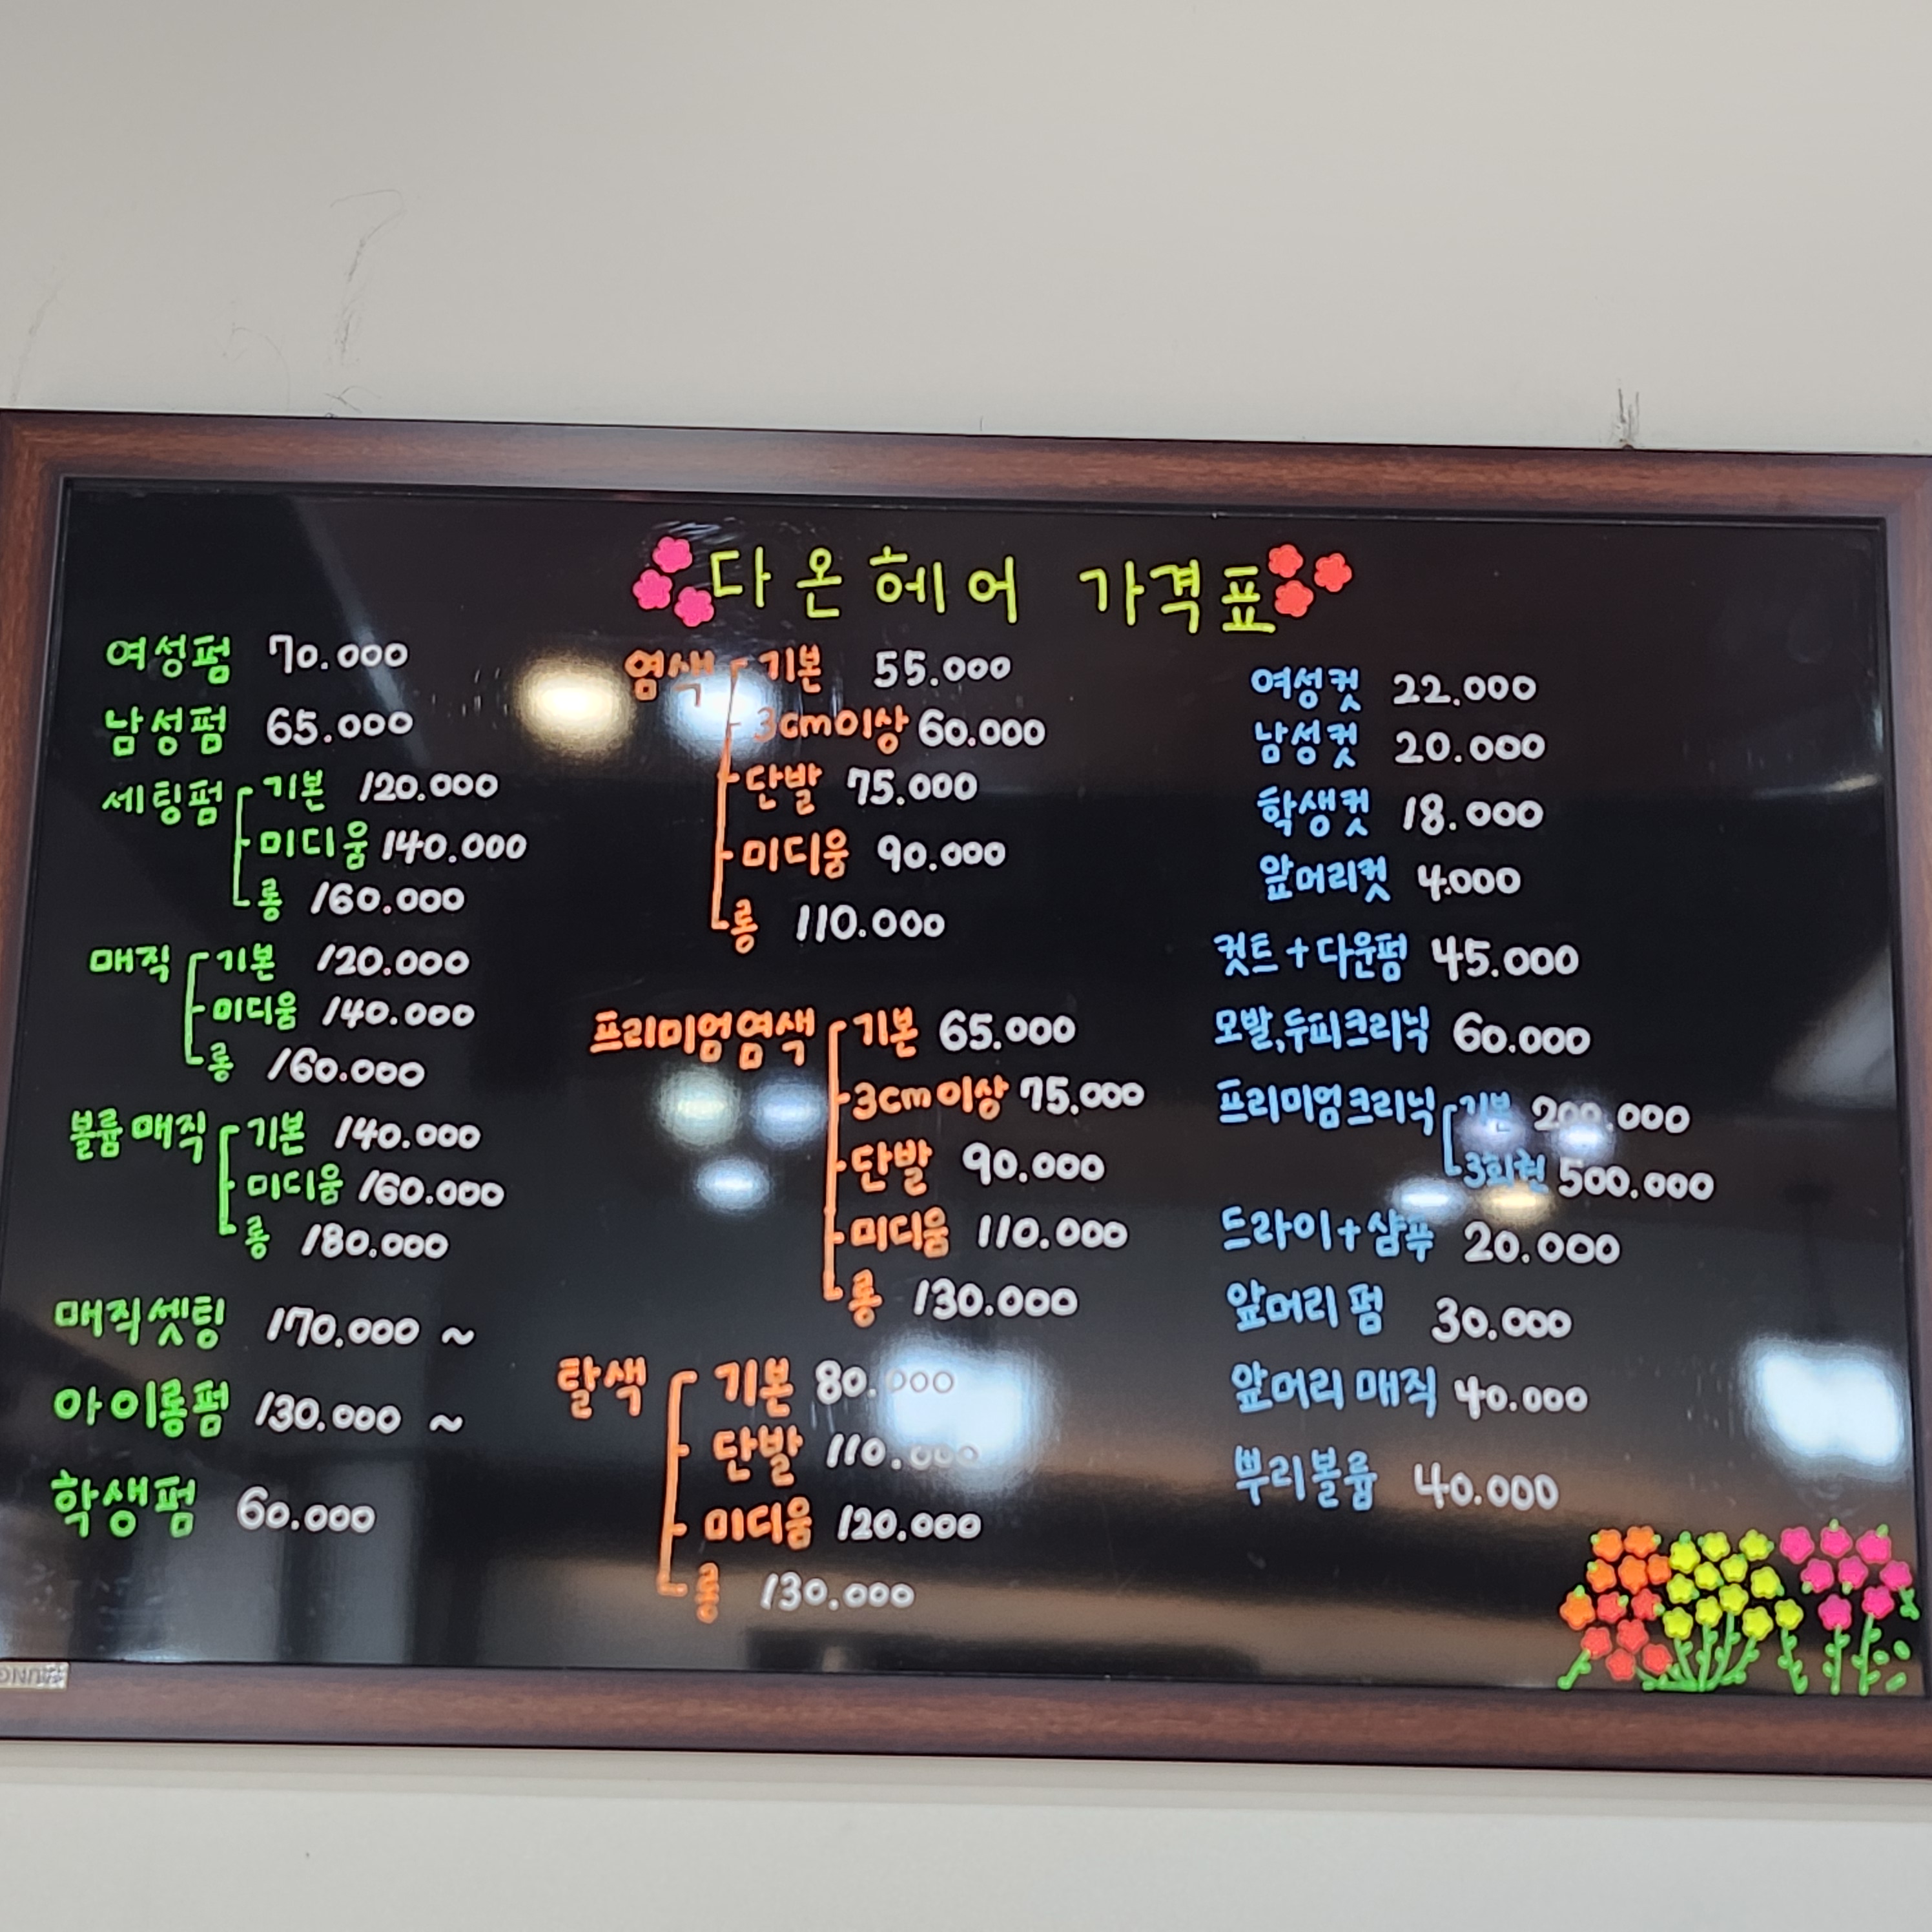 다온헤어 가격표
여성펌 70.000
남성펌 65.000
세팅펌 기본 120.000
미디움 140.000
롱 160.000
매직 기본 120.000
미디움 140.000
롱 160.000
볼륨매직 기본 140.000
미디움 160.000
롱 180.000
매직셋팅 170.000 ~
아이롱펌 130.000 ~
학생펌 60.000
염색 기본 55.000
3cm이상 60.000
단발 75.000
미디움 90.000
롱 110.000
프리미엄염색 기본 65.000
3cm이상 75.000
단발 90.000
미디움 110.000
롱 130.000
탈색 기본 80.000
단발 110.000
미디움 120.000
롱 130.000
여성컷 22.000
남성컷 20.000
학생컷 18.000
앞머리컷 4.000
컷트+다운펌 45.000
모발,두피크리닉 60.000
프리미엄크리닉 기본 200.000
3회권 500.000
드라이+샴푸 20.000
앞머리펌 30.000
앞머리 매직 40.000
뿌리볼륨 40.000